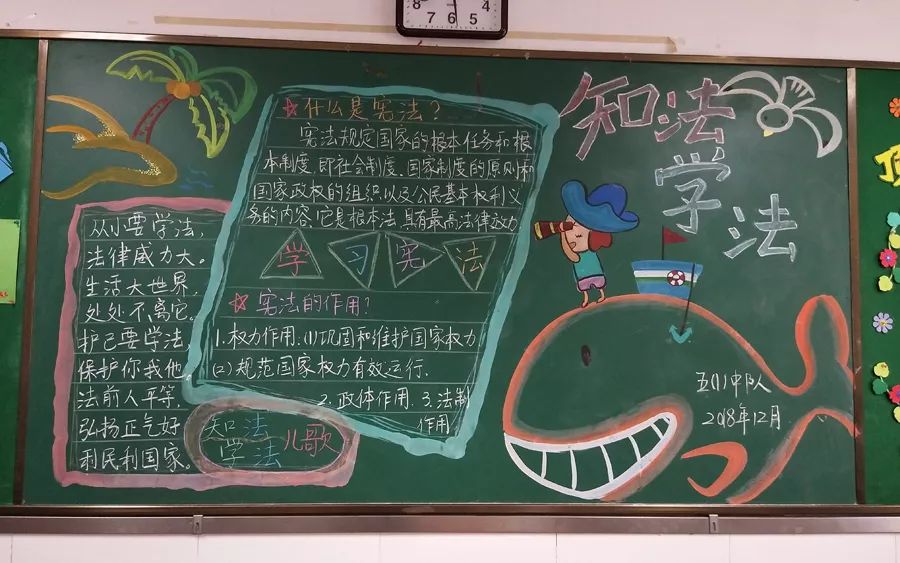 8 7 6 5 4
知法
学
法
什么是宪法?
宪法规定国家的根本任务和根
本制度,即社会制度、国家制度的原则和
国家政权的组织以及公民基本权利义
务的内容,它是根本法,具有最高法律效力
学 习 宪 法
宪法的作用?
1.权力作用:(1)巩固和维护国家权力
(2)规范国家权力有效运行.
2.政体作用.3.法制
作用
从小要学法,
法律威力大。
生活大世界,
处处不离它。
护己要学法,
保护你我他,
法前人平等,
弘扬正气好
利民利国家。
知法
学法
儿歌
五(1)中队
2018年12月